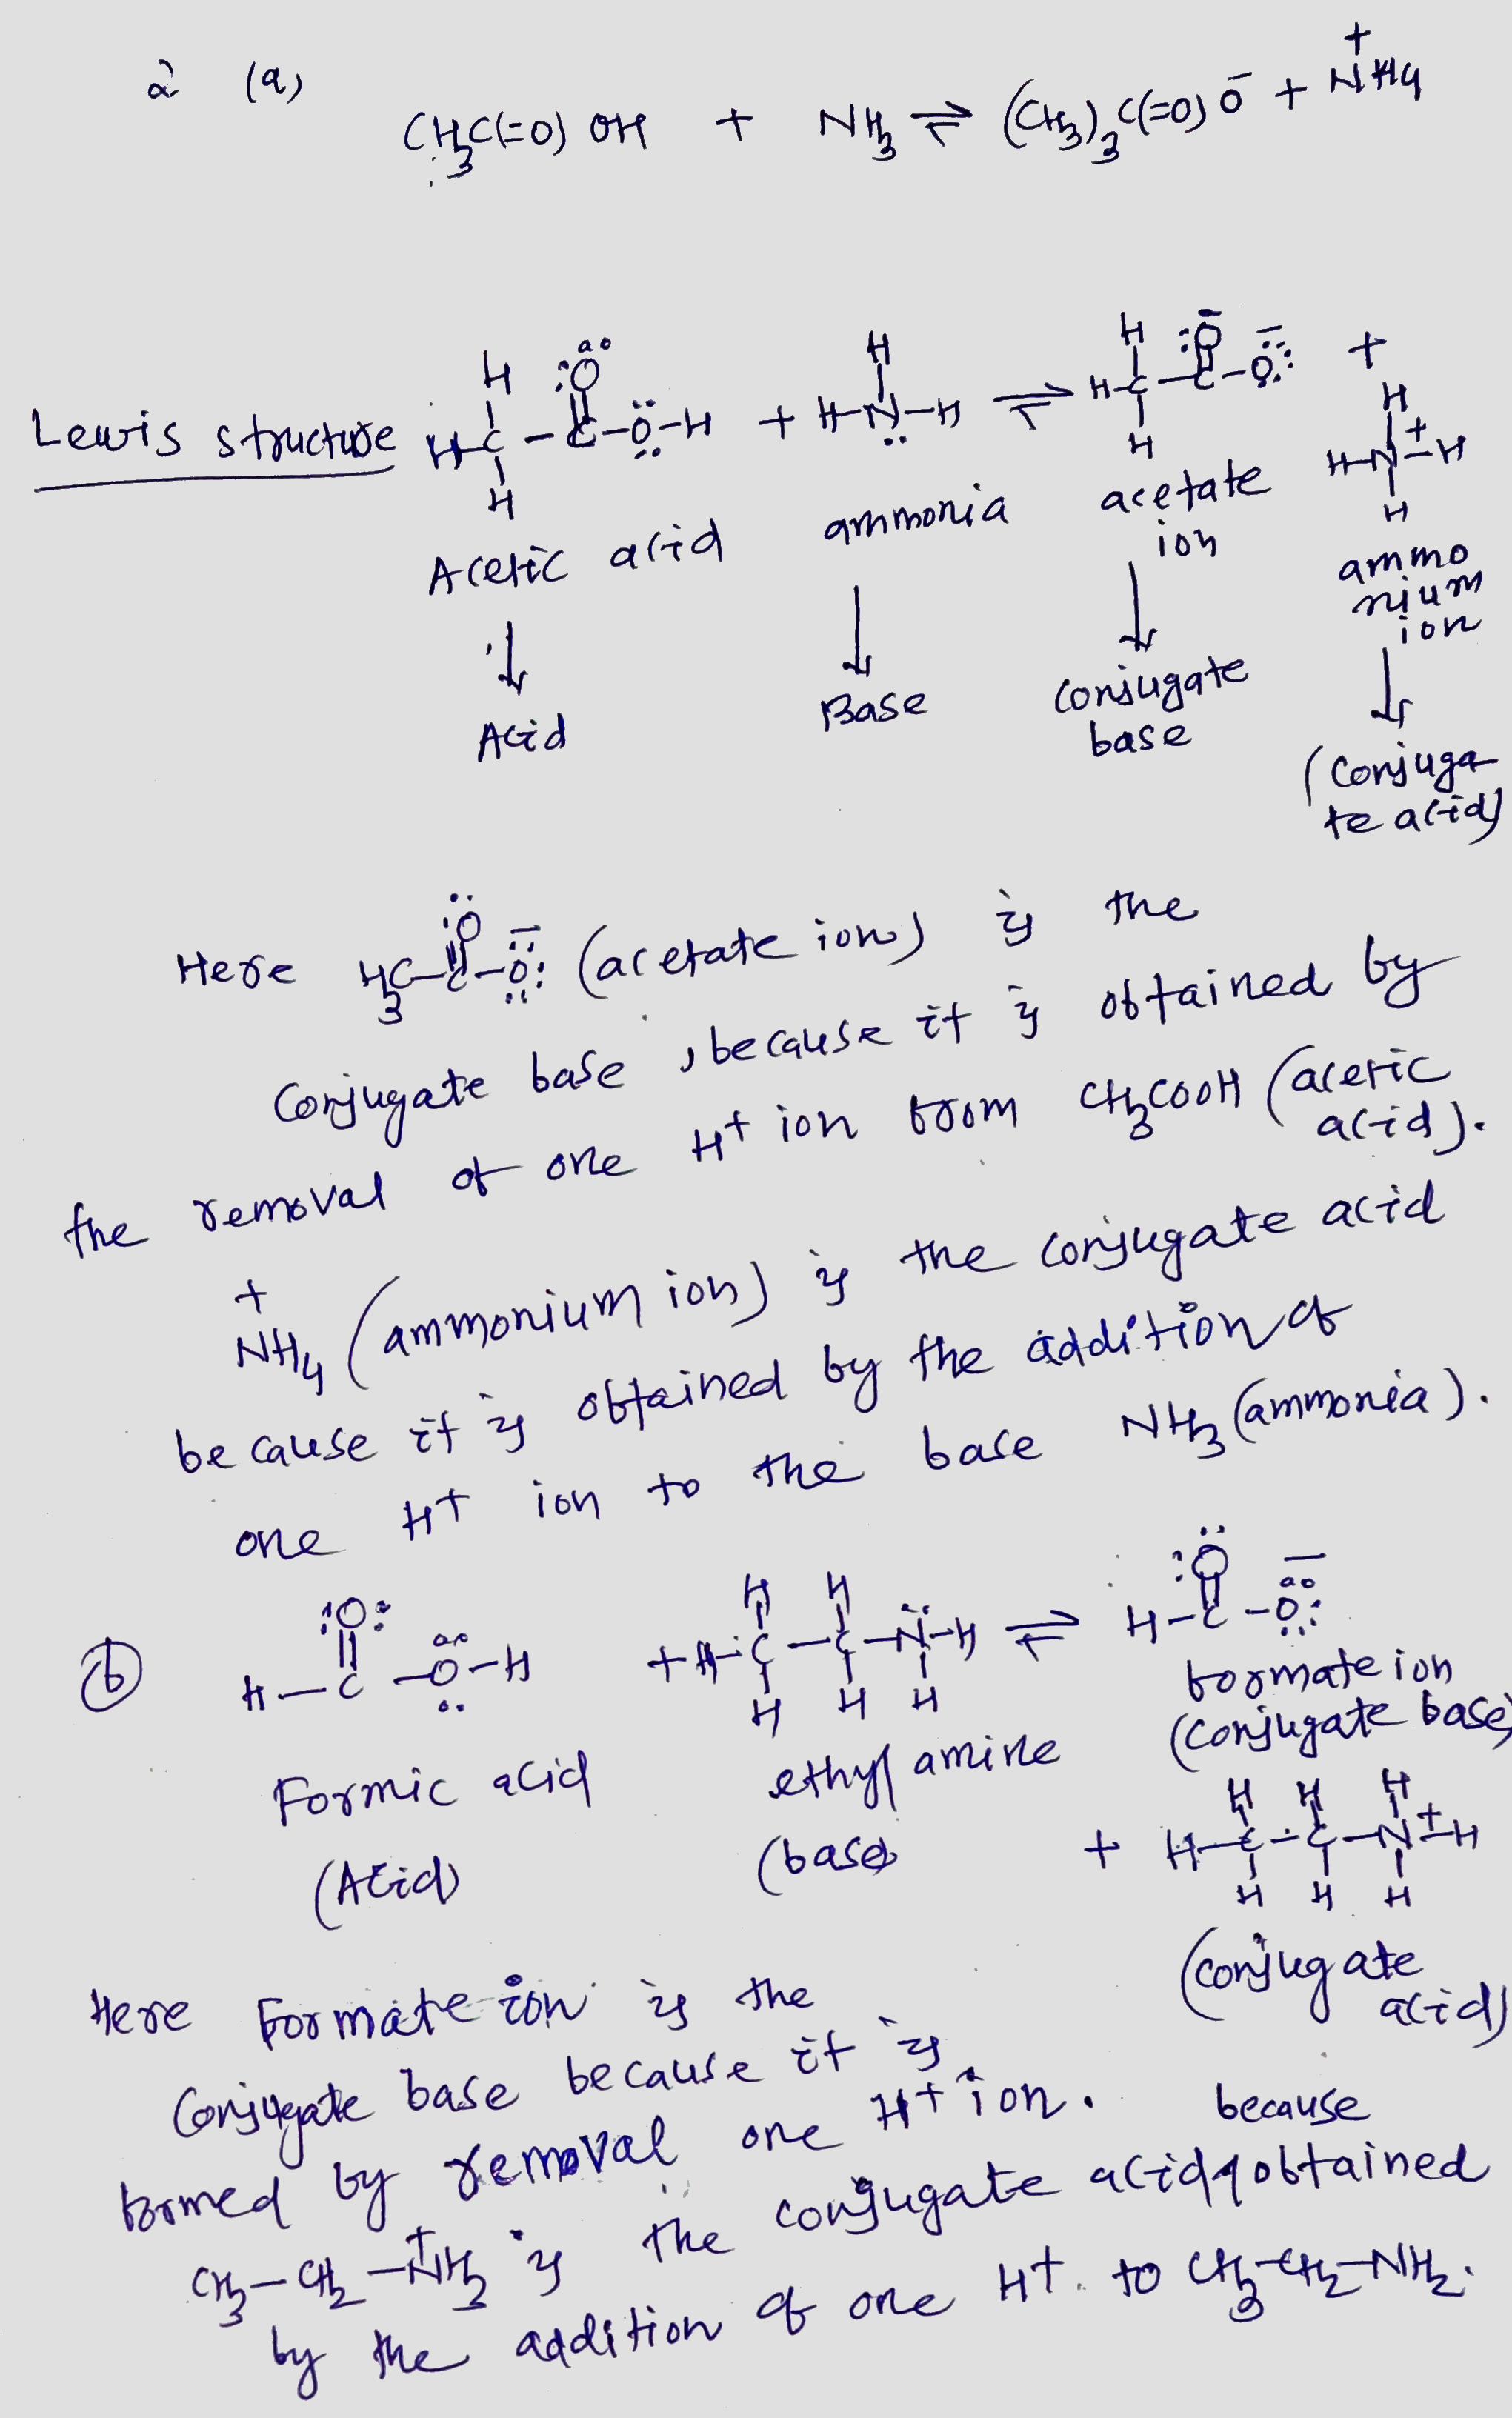 2 (a)
CH3C(=O) OH + NH3 ⇌ (CH3)3C(=O) O⁻ + N⁺H4
Lewis structure
H H H H
H-C-C-Ö-H + H-N-H ⇌ H-C-C-O⁻ + H-N⁺-H
H H H
Acetic acid ammonia acetate ion ammonium ion
↓ ↓ ↓ ↓
Acid Base Conjugate base (Conjugate acid)
Here H3C-C-O⁻ (acetate ion) is the
Conjugate base, because it is obtained by
the removal of one H+ ion from CH3COOH (acetic acid).
N⁺H4 (ammonium ion) is the conjugate acid
because it is obtained by the addition of
one H+ ion to the base NH3 (ammonia).
(b) H-C-O-H + H-C-C-N-H ⇌ H-C-O⁻
Formic acid ethyl amine formate ion
(Acid) (base) (Conjugate base)
+ H-C-C-N⁺-H
(conjugate acid)
Here Formate ion is the
Conjugate base because it is
formed by removal one H+ ion.
CH3-CH2-N⁺H3 is the conjugate acid because obtained
by the addition of one H+ to CH3-CH2-NH2.